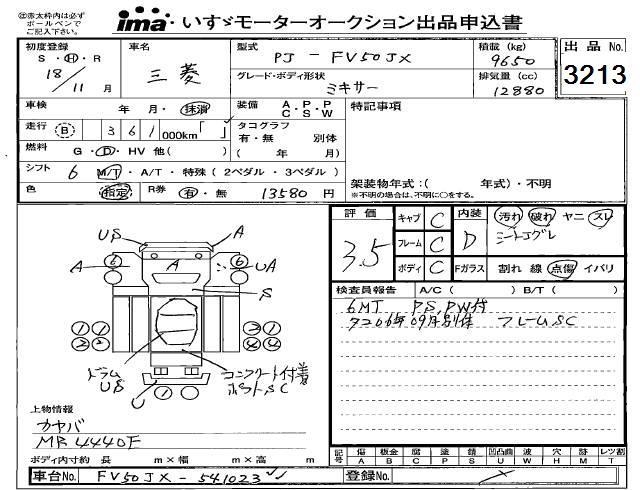 ㊟赤太枠内は必ず
ボールペンで
ご記入下さい。
ima・いすゞモーターオークション出品申込書
初度登録 車名 型式 PJ - FV50JX 積載 (kg) 9650 出品 No.
S・H・R 18/11 月 三菱 グレード・ボディ形状 ミキサー 排気量 (cc) 12880 3213
車検 年 月・抹消 装備 A.P.P C S W 特記事項
走行 B 361 000km タコグラフ 有・無 別体
燃料 G・D・HV 他( ) ( 年 月)
シフト 6 M/T・A/T・特殊(2ペダル・3ペダル) 架装物年式:( 年式)・不明
色 指定 R券 有・無 13580 円 ※不明の場合は、不明に○をする。
評価 3.5 キャブ C 内装 D 汚れ 破れ ヤニ スレ
フレーム C シートコゲレ
ボディ C Fガラス 割れ 線 点傷 イバリ
検査員報告 A/C( ) B/T( )
6MT PS,PW付
タコ06年09月別体 フレームSC
US A
A 6 A 6 UA
S
1 1 2 1
2 2 4 4
ドラム US コンクリート付着
ボデートSC
C 1
上物情報
カヤバ
MR4440E
ボディ内寸約 長 m×幅 m×高 m
記号 傷 A 板金 B 腐 C 塗 P 錆 S 凹凸曲 U 波 W 穴 H 跡 M レツ割 T
車台No. FV50JX-541023 登録No.